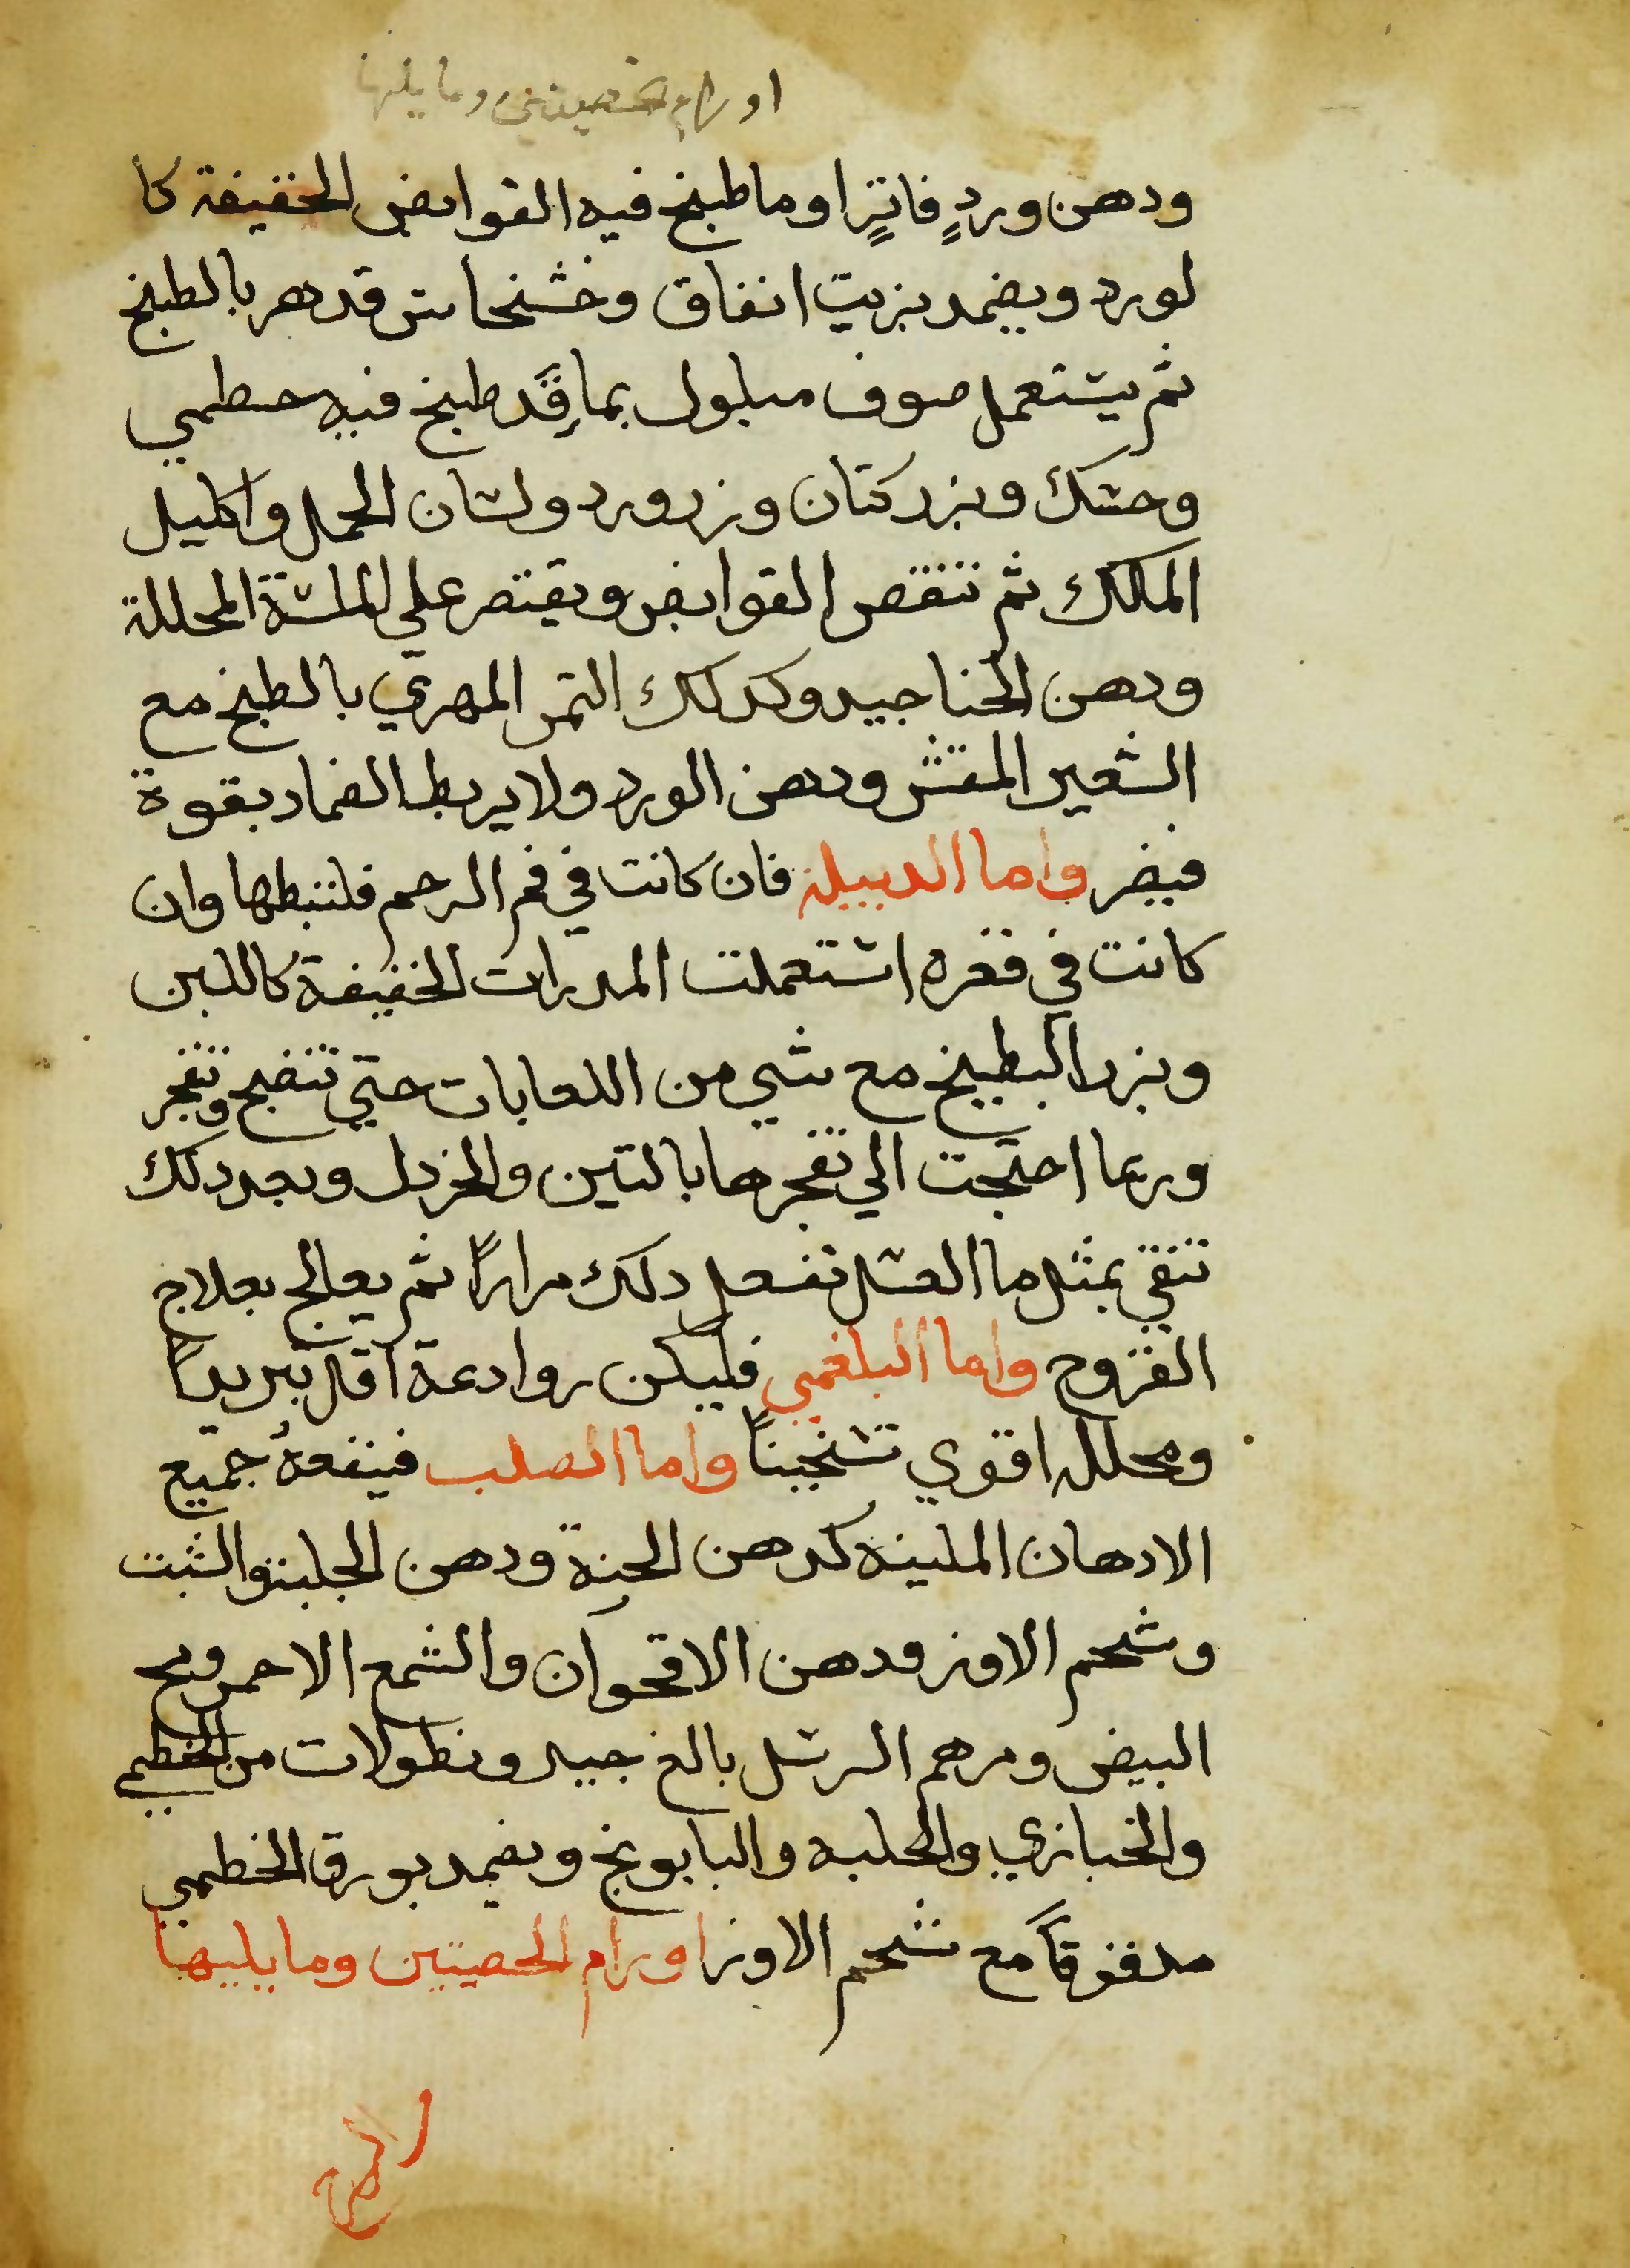 اورام الخصيتين وما يليها
ودهن وردٍ فاترٍ او ما طبخ فيه القوابض الخفيفة كا
لورد ويضمد بزيت انفاق وخشخاش قد هر بالطبخ
ثم يستعمل صوف مبلول بما قَد طبخ فيه خطمي
وحسك وبزر كتان وزر ورد ولسان الحمل واكليل
الملك ثم تنقص القوابض ويقتصر علي الملينة المحللة
ودهن الحنا جيد وكدلك التمر المهري بالطبخ مع
الشعير المقشر ودهن الورد ولا يربط الضماد بقوة
فيضر واما الدبيلة فان كانت في فم الرحم فلتبطها وان
كانت في قعره استعملت المدرات الخفيفة كاللبن
وبزر البطيخ مع شي من اللعابات حتي تنضج وتنفجر
وربما احتجت الي تفجرها بالتين والخردل وبعد دلك
تنقي بمثل ما العسل تفعل دلك مرارًا ثم يعالج بعلاج
القروح واما البلغمي فليكن روادعة اقل تبريدًا
ومحلله اقوي تسخينًا واما الصلب فينفعهُ جميع
الادهان الملينه كدهن الحنة ودهن الحلبة والشبت
وشحم الاوز ودهن الاقحوان والشمع الاحمر ومح
البيض ومرهم الرسل بالغ جيد ونطولات من الخطمي
والخبازي والحلبه والبابونج ويضمد بورق الخطمي
مدقوقاً مع شحم الاوز اورام الخصيتين وما يليها